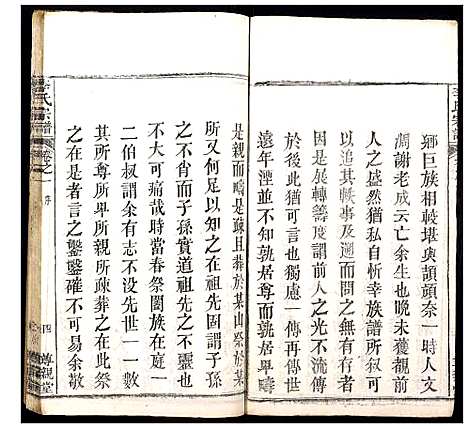 鄉巨族相較堪與頡頏奈一時人文
凋謝老成云亡余生也晚未獲覩前
人之盛然猶私自忻幸族譜所刊可
以追其軼事及適而問之無有存者
因是展轉籌度謂前人之光不流傳
於後此猶可言也獨慮一傳再傳
遠年湮並不知孰居尊而孰居卑疇
是親而疇是疎且葬於某山祭於某
所又何怪尊祖先者輒固謂子孫
之不肖而子孫實道祖先之不靈也
不大可痛哉時當春祭闔族在庭一
二伯叔謂余曷不修先世一一數
其所尊所卑所親所疎葬之在此祭
之在是者言之鑿鑿確不可易余敬
李氏宗譜
卷之一
序
四
尊親堂
李氏宗譜